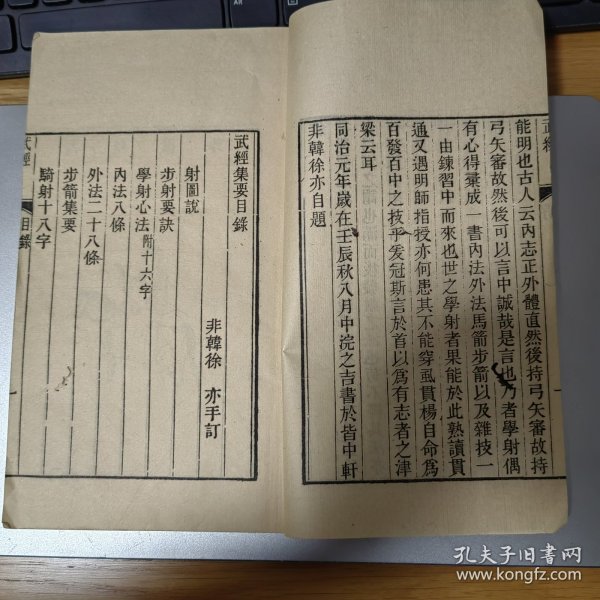 能明也古人云內志正外體直然後持弓矢審故持
弓矢審故然後可以言中誠哉是言也乃者學射偶
有心得彙成一書內法外法馬箭步箭以及雜技一
一由鍊習中而來也世之學射者果能於此熟讀貫
通又遇明師指授亦何患其不能穿虱貫楊自命爲
百發百中之技乎爰冠斯言於首以爲有志者之津
梁云耳
同治元年歲在壬辰秋八月中浣之吉書於皆中軒
非韓徐亦自題
武經集要目錄
非韓徐 亦手訂
射圖說
步射要訣
學射心法附十六字
內法八條
外法二十八條
步箭集要
騎射十八字
武經 目錄 一
孔夫子旧书网
www.kongfz.com